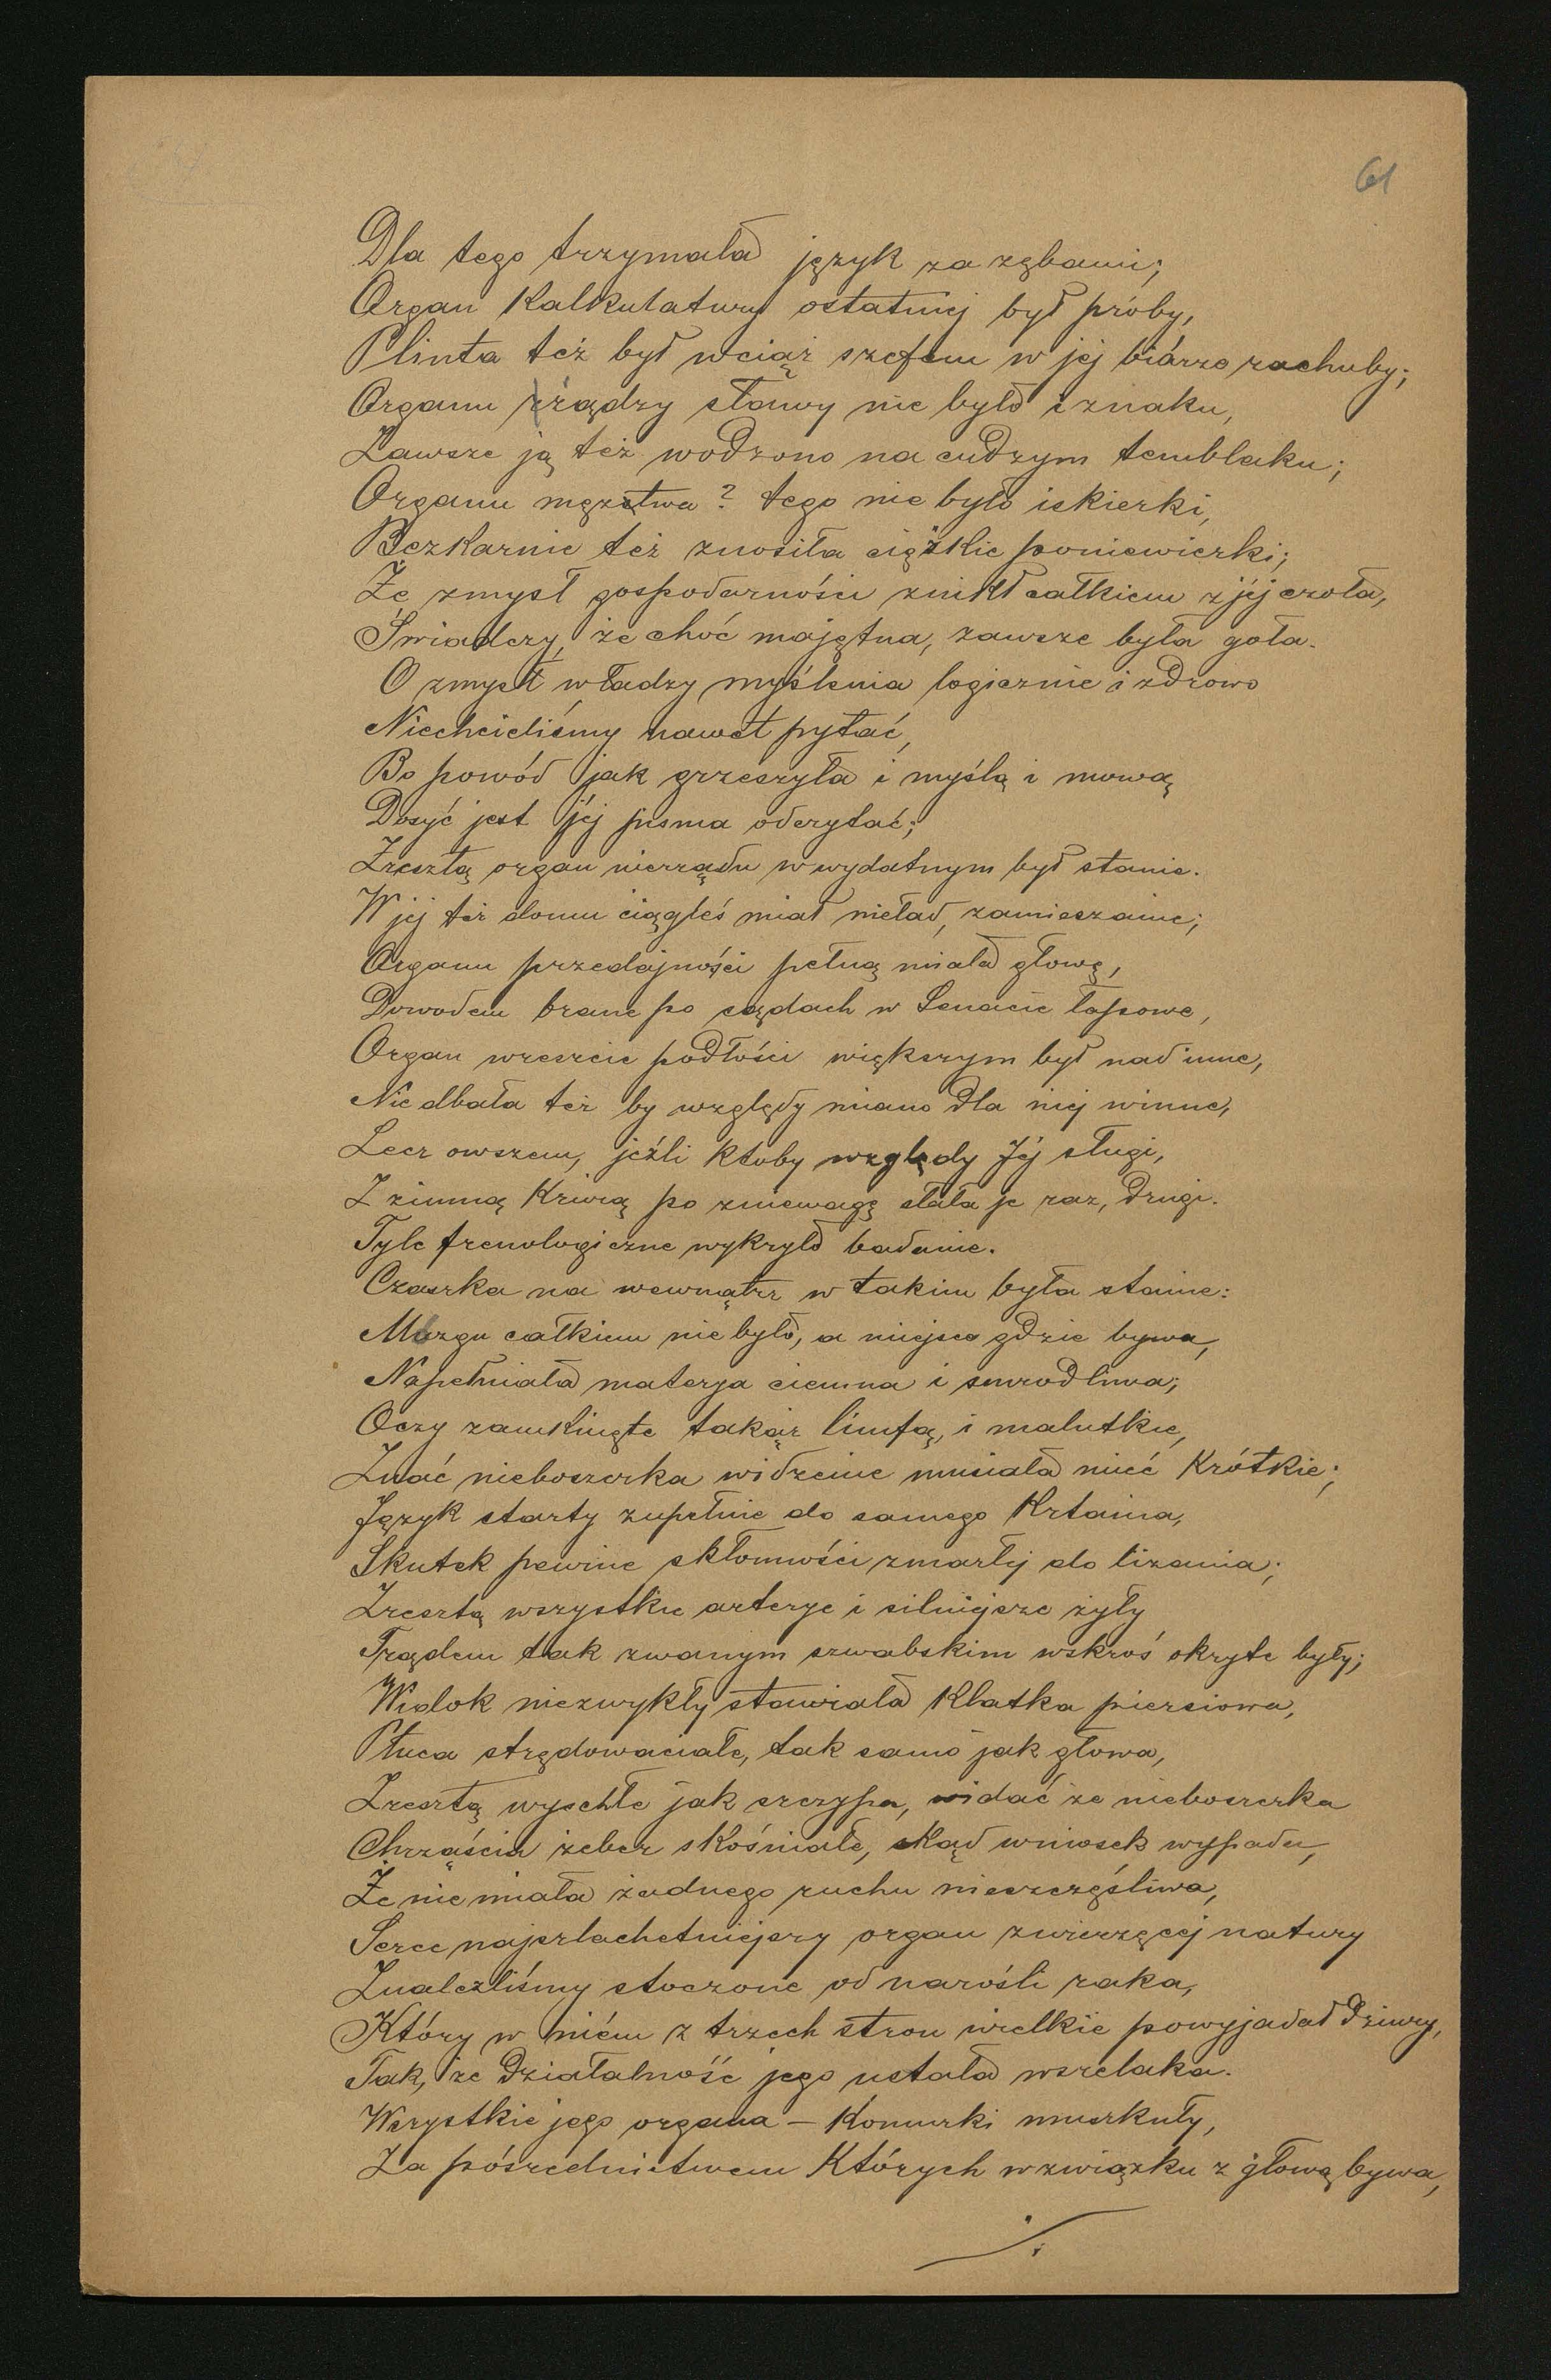 61
Dla tego trzymała język za zębami;
Organ Kalkulatury ostatniej był próby,
Plinta też był wciąż szefem w jej biórze rachuby;
Organu żądzy sławy nie było i znaku,
Zawsze ją też wodzono na cudzym temblaku;
Organu męztwa? tego nie było iskierki,
Bezkarnie też znosiła ciężkie poniewierki;
Że zmysł gospodarności znikł całkiem z jéj czoła,
Świadczy, że choć majętna, zawsze była goła.
O zmysł władzy myślenia logicznie i zdrowo
Niechcieliśmy nawet pytać,
Bo powód jak grzeszyła i myślą i mową
Dosyć jest jéj pisma odczytać;
Zresztą organ nierządu w wydatnym był stanie.
W jej też domu ciągleś miał nieład, zamieszanie;
Organu przedajności pełną miała głowę,
Dowodem brane po sądach w Senacie łapowe,
Organ wreszcie podłości większym był nad inne,
Nie dbała też by względy miano dla niej winne,
Lecz owszem, jeźli ktoby względy Jéj sługi,
Z zimną Krwią po zniewagę słała je raz, drugi.
Tyle frenologiczne wykryło badanie.
Czaszka na wewnątrz w takim była stanie:
Mózgu całkiem nie było, a miejsce gdzie bywa,
Napełniała materja ciemna i smrodliwa;
Oczy zamknięte takąż limfą, i malutkie,
Znać nieboszczka widzenie musiała mieć Krótkie;
Język starty zupełnie do samego Krtania,
Skutek pewnie skłonności zmarłéj do lizania;
Zresztą wszystkie arterye i silniejsze żyły
Trądem tak zwanym szwabskim wskroś okryte były;
Widok niezwykły stawiała Klatka piersiowa,
Płuca strędowaciałe, tak samo jak głowa,
Zresztą wyschłe jak szczypa, widać że nieboszczka
Chrząścia żeber skośniałe, skąd wniosek wypada,
Że nie miała żadnego ruchu nieszczęśliwa,
Serce najszlachetniejszy organ zwierzęcej natury
Znaleźliśmy stoczone od narośli raka,
Który w niém z trzech stron wielkie powyjadał dziury,
Tak, że działalność jego ustała wszelaka.
Wszystkie jego organa – Komurki muszkuły,
Za pośrednictwem Których w związku z głową bywa,